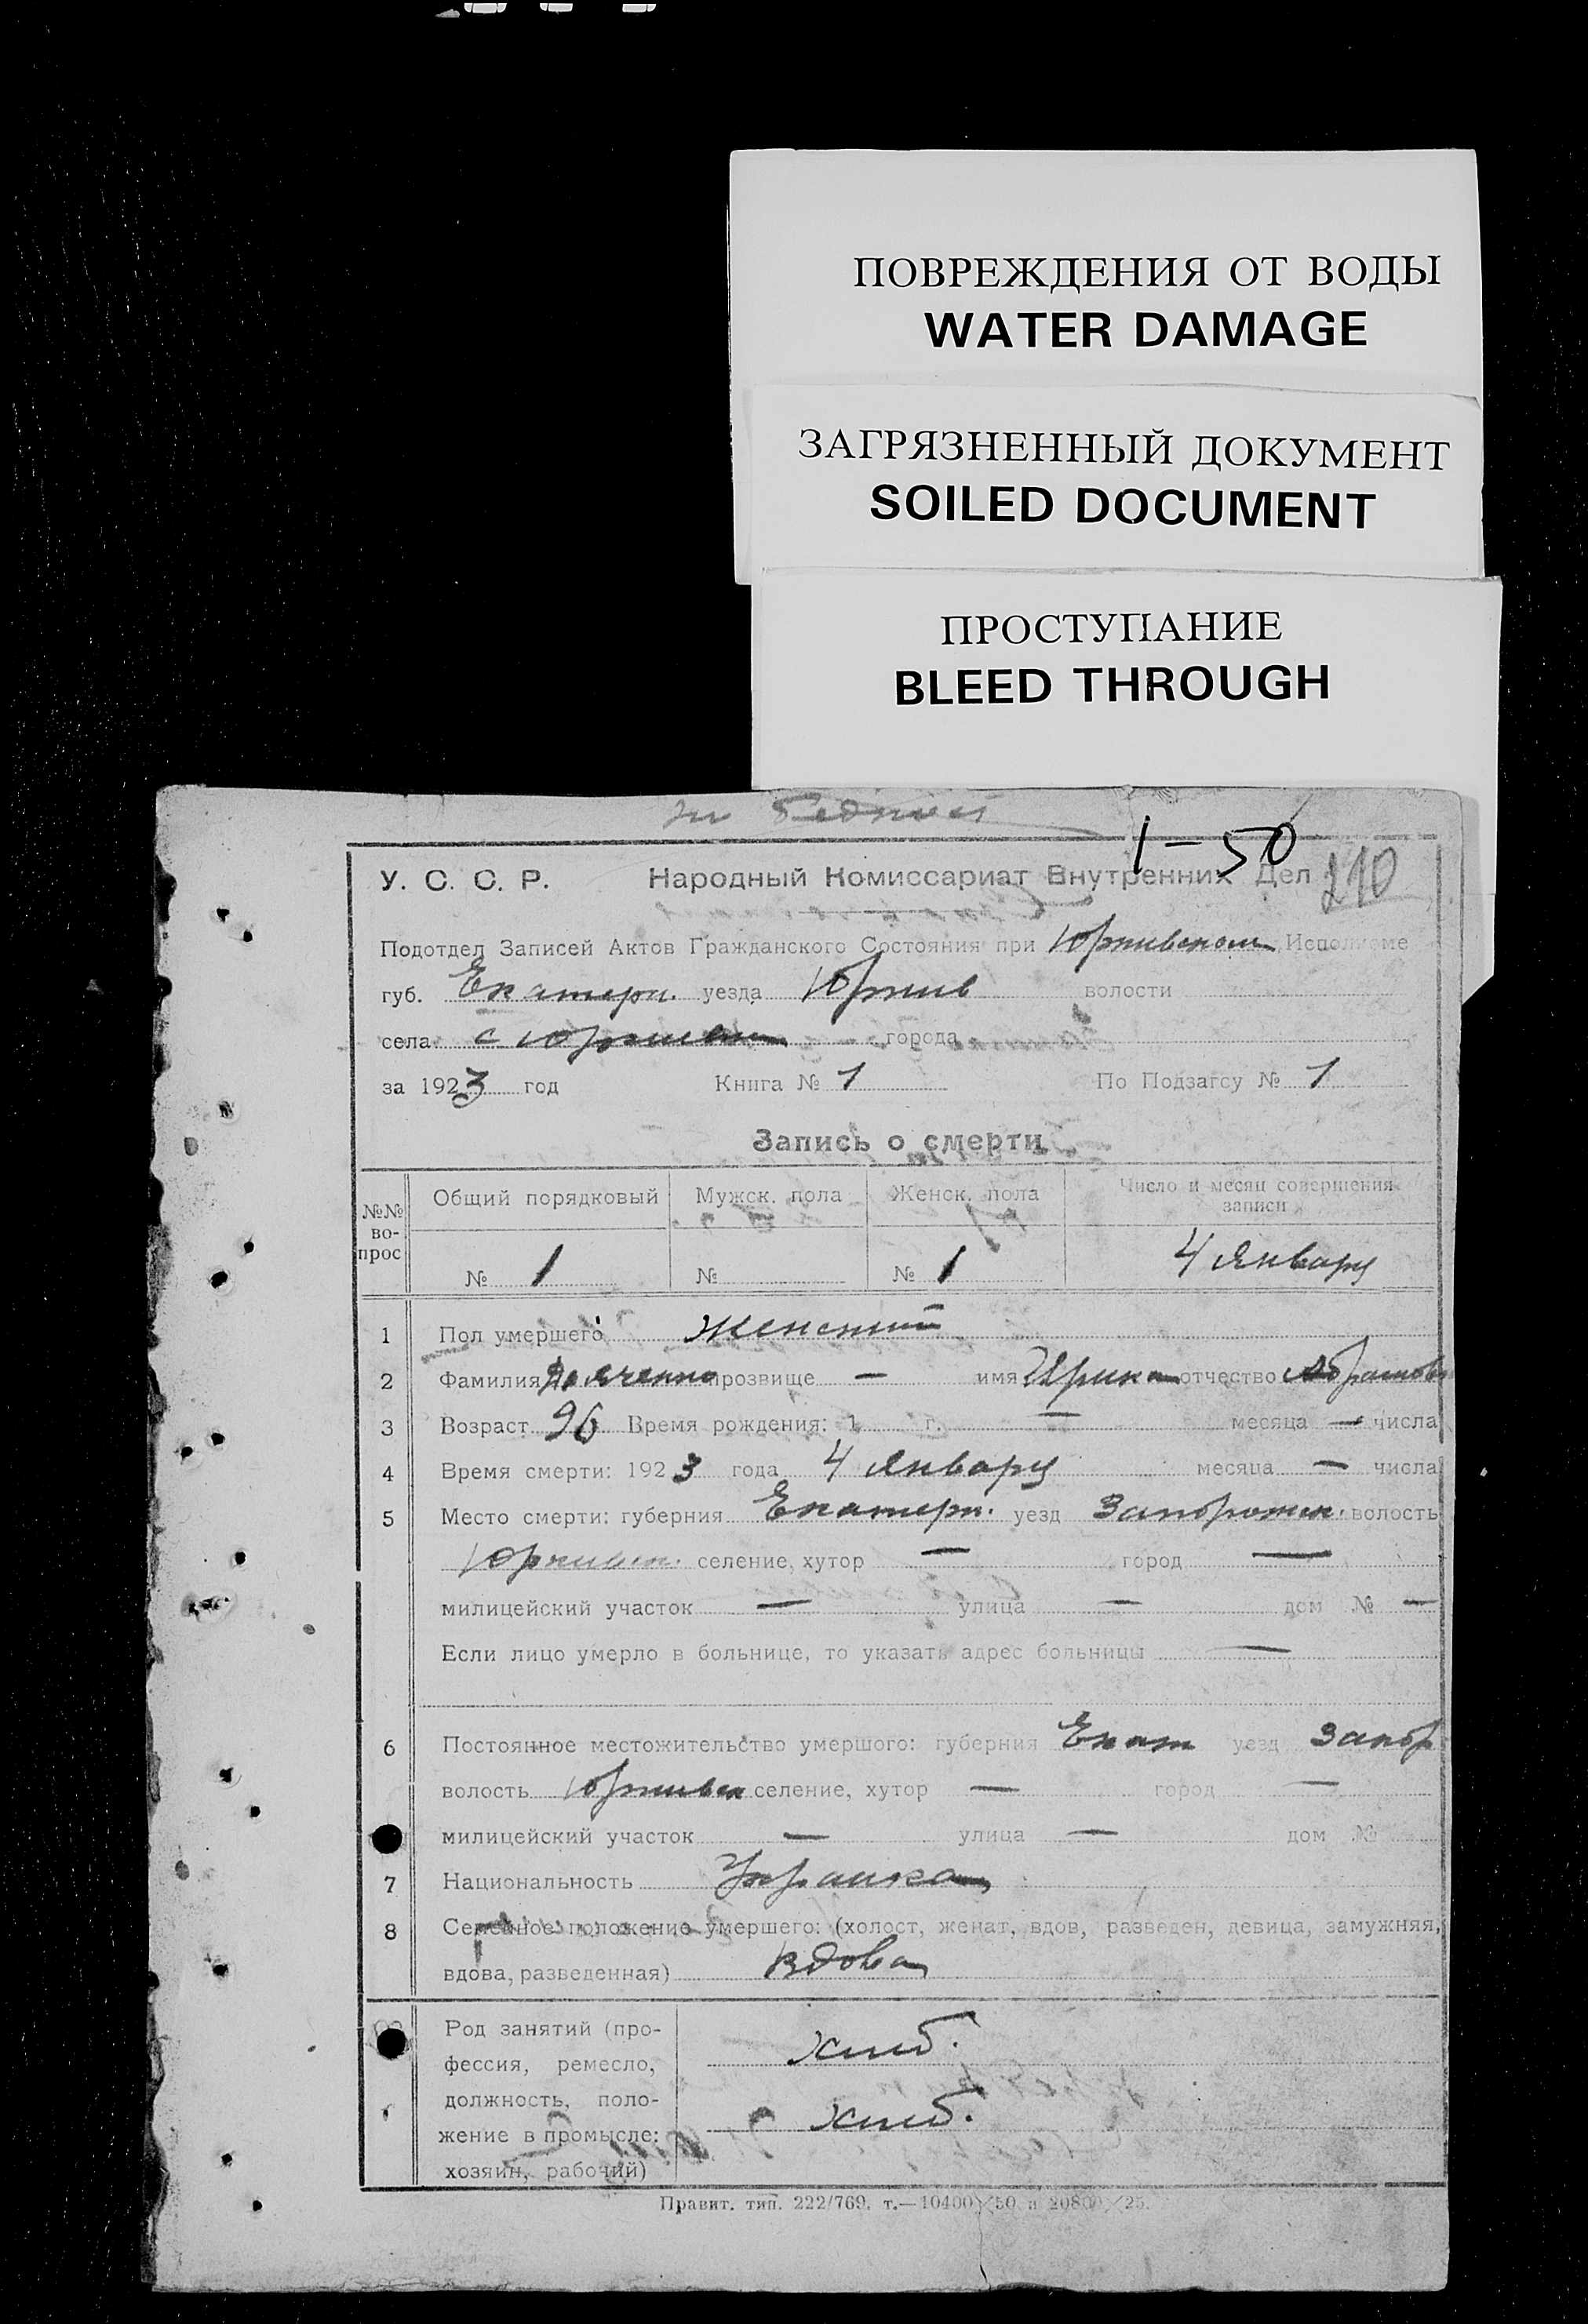 ПОВРЕЖДЕНИЯ ОТ ВОДЫ
WATER DAMAGE
ЗАГРЯЗНЕННЫЙ ДОКУМЕНТ
SOILED DOCUMENT
ПРОСТУПАНИЕ
BLEED THROUGH
1-50
У. С. С. Р. Народный Комиссариат Внутренних Дел 210
Подотдел Записей Актов Гражданского Состояния при Юркивском Исполкоме
губ. Екатерн. уезда Юркив волости
села с Юркивки города
за 1923 год Книга № 1 По Подзагсу № 1
Запись о смерти
№№ во- прос Общий порядковый Мужск. пола Женск. пола Число и месяц совершения записи
№ 1 № № 1 4 Январу
1 Пол умершего Женский
2 Фамилия прозвище — имя Ирина отчество Абрамов
3 Возраст 96 Время рождения: 1 г. — месяца — числа
4 Время смерти: 1923 года 4 Январу месяца — числа
5 Место смерти: губерния Екатерн. уезд Запорожск. волость
Юркивск. селение, хутор — город —
милицейский участок — улица — дом № —
Если лицо умерло в больнице, то указать адрес больницы —
6 Постоянное местожительство умершого: губерния Екат уезд Запор
волость Юркивск селение, хутор — город —
милицейский участок — улица — дом №
7 Национальность Украинка
8 Семейное положение умершего: (холост, женат, вдов, разведен, девица, замужняя,
вдова, разведенная) Вдова
Род занятий (про-
фессия, ремесло, хлиб.
должность, поло-
жение в промысле: хлиб.
хозяин, рабочий)
Правит. тип. 222/769. т.—10400×50 и 20800×25.